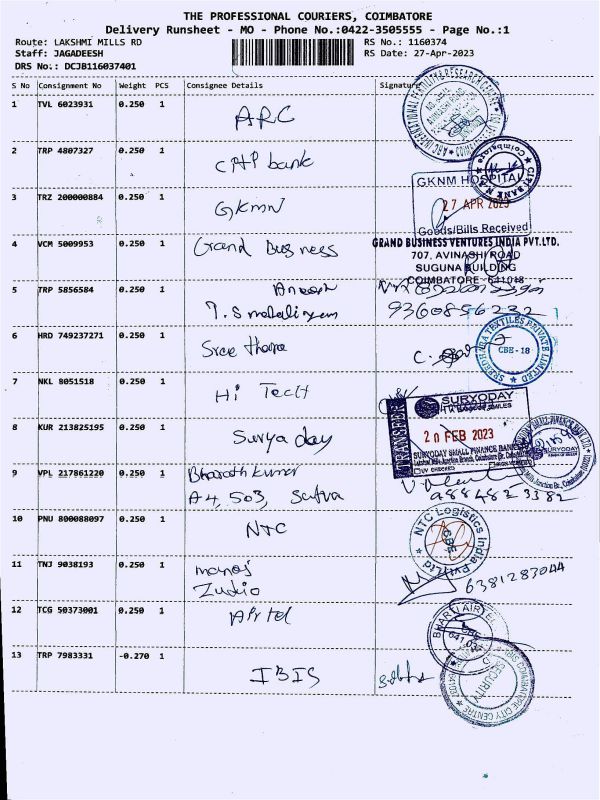 THE PROFESSIONAL COURIERS, COIMBATORE
Delivery Runsheet - MO - Phone No.:0422-3505555 - Page No.:1
Route: LAKSHMI MILLS RD
RS No.: 1160374
Staff: JAGADEESH
RS Date: 27-Apr-2023
DRS No.: DCJB116037401
S No Consignment No Weight PCS Consignee Details Signature
1 TVL 6023931 0.250 1 ARC
2 TRP 4807327 0.250 1 bank
CITI BANK N.A. Coimbatore
3 TRZ 200000884 0.250 1 GKMN
GKNM HOSPITAL
27 APR 2023
Goods/Bills Received
4 VCM 5009953 0.250 1 Grand Business
GRAND BUSINESS VENTURES INDIA PVT.LTD.
707, AVINASHI ROAD
SUGUNA BUILDING
COIMBATORE - 641018
5 TRP 5856584 0.250 1
9360856232
6 HRD 749237271 0.250 1 Sree thara
TEXTILES PRIVATE LIMITED
CBE - 18
7 NKL 8051518 0.250 1 Hi Tech
8 KUR 213825195 0.250 1 Surya day
SURYODAY
20 FEB 2023
SURYODAY SMALL FINANCE BANK
9 VPL 217861220 0.250 1 Bharath kumar
A4, 503, Satva
9884823382
10 PNU 800088097 0.250 1 NTC
NTC Logistics India Pvt Ltd
CBE
11 TNJ 9038193 0.250 1 manoj
Zudio
6381283044
12 TCG 50373001 0.250 1 Airtel
BHARTI AIRTEL
13 TRP 7983331 -0.270 1 IBIS
IBIS COIMBATORE CITY CENTRE
SECURITY